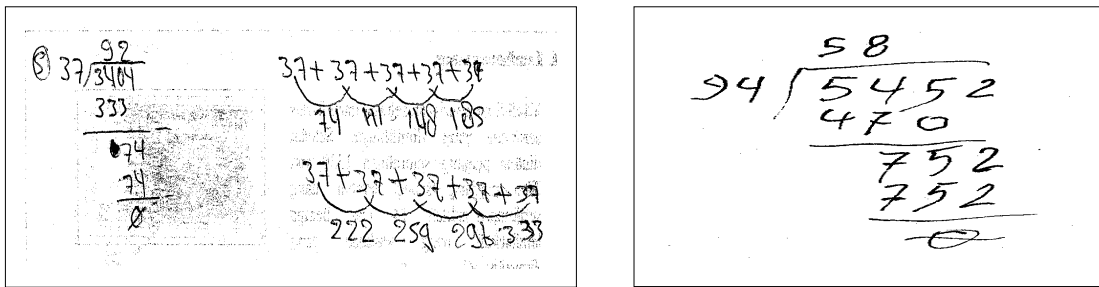 92
⑤ 37/3404
333
74
74
0
37+37+37+37+37
74 111 148 185
37+37+37+37+37
222 259 296 333
58
94/5452
470
752
752
0